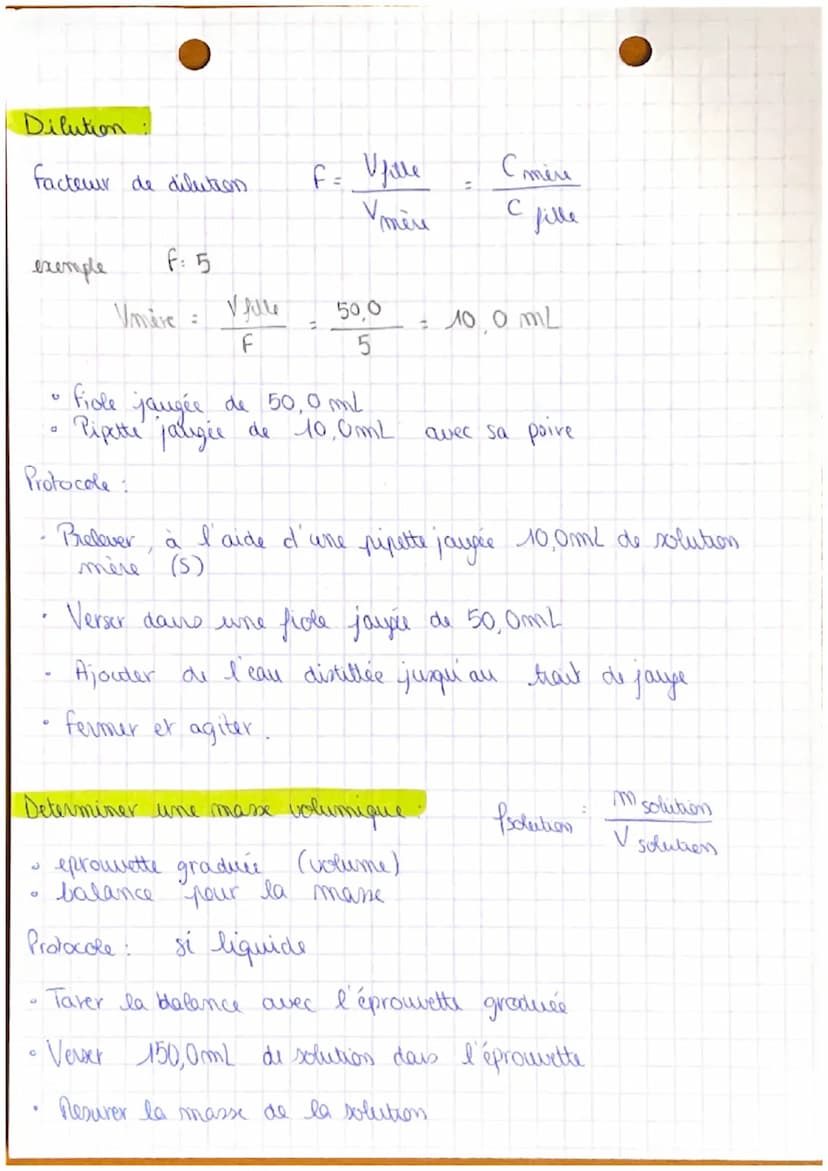 Dilution :
facteur de dilution F = Vfille / Vmère = Cmère / C fille
exemple F: 5
Vmère = Vfille / F = 50,0 / 5 = 10,0 mL
• fiole jaugée de 50,0 mL
• Pipette jaugée de 10,0mL avec sa poire
Protocole :
• Prelever, à l'aide d'une pipette jaugée 10,0mL de solution
mère (S)
• Verser dans une fiole jaugée de 50,0mL
• Ajouter de l'eau distillée jusqu'au trait de jauge
• fermer et agiter.
Determiner une masse volumique. ρsolution = m solution / V solution
• eprouvette graduée (volume)
• balance pour la masse
Protocole : si liquide
• Tarer la balance avec l'éprouvette graduée
• Verser 150,0mL de solution dans l'éprouvette
• Mesurer la masse de la solution